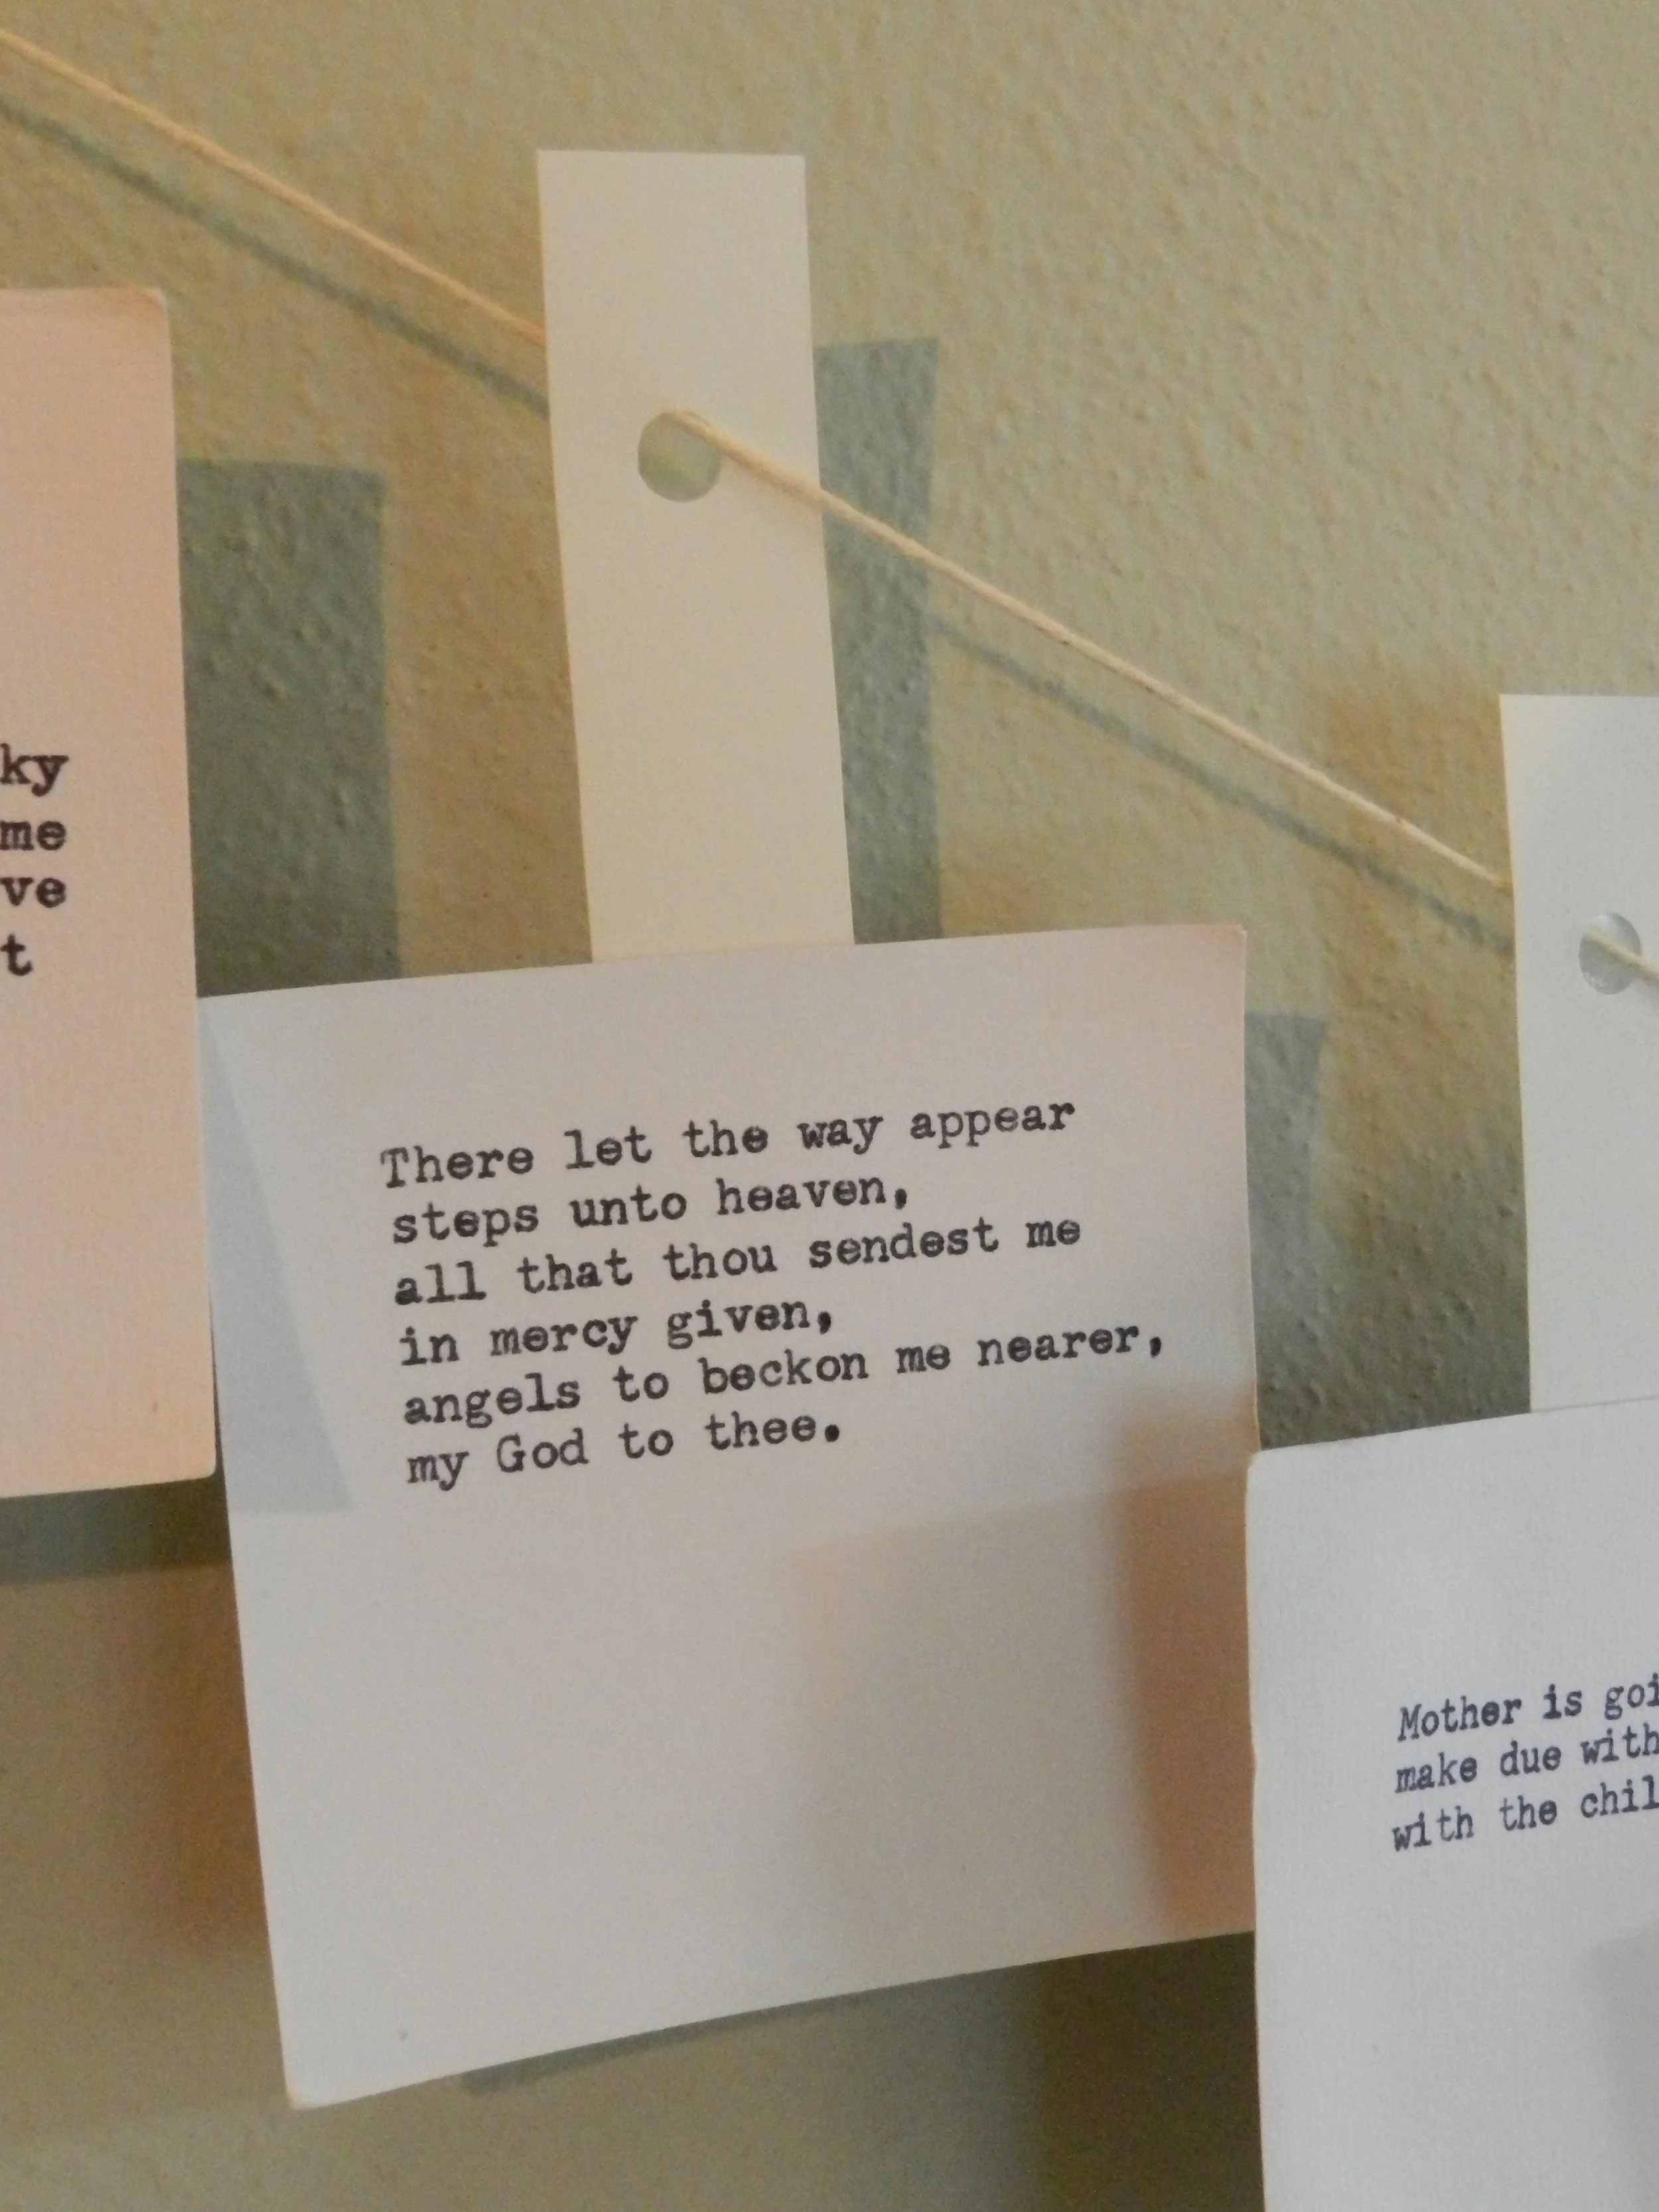 ky
me
ve
t
There let the way appear
steps unto heaven,
all that thou sendest me
in mercy given,
angels to beckon me nearer,
my God to thee.
Mother is goi
make due with
with the chil